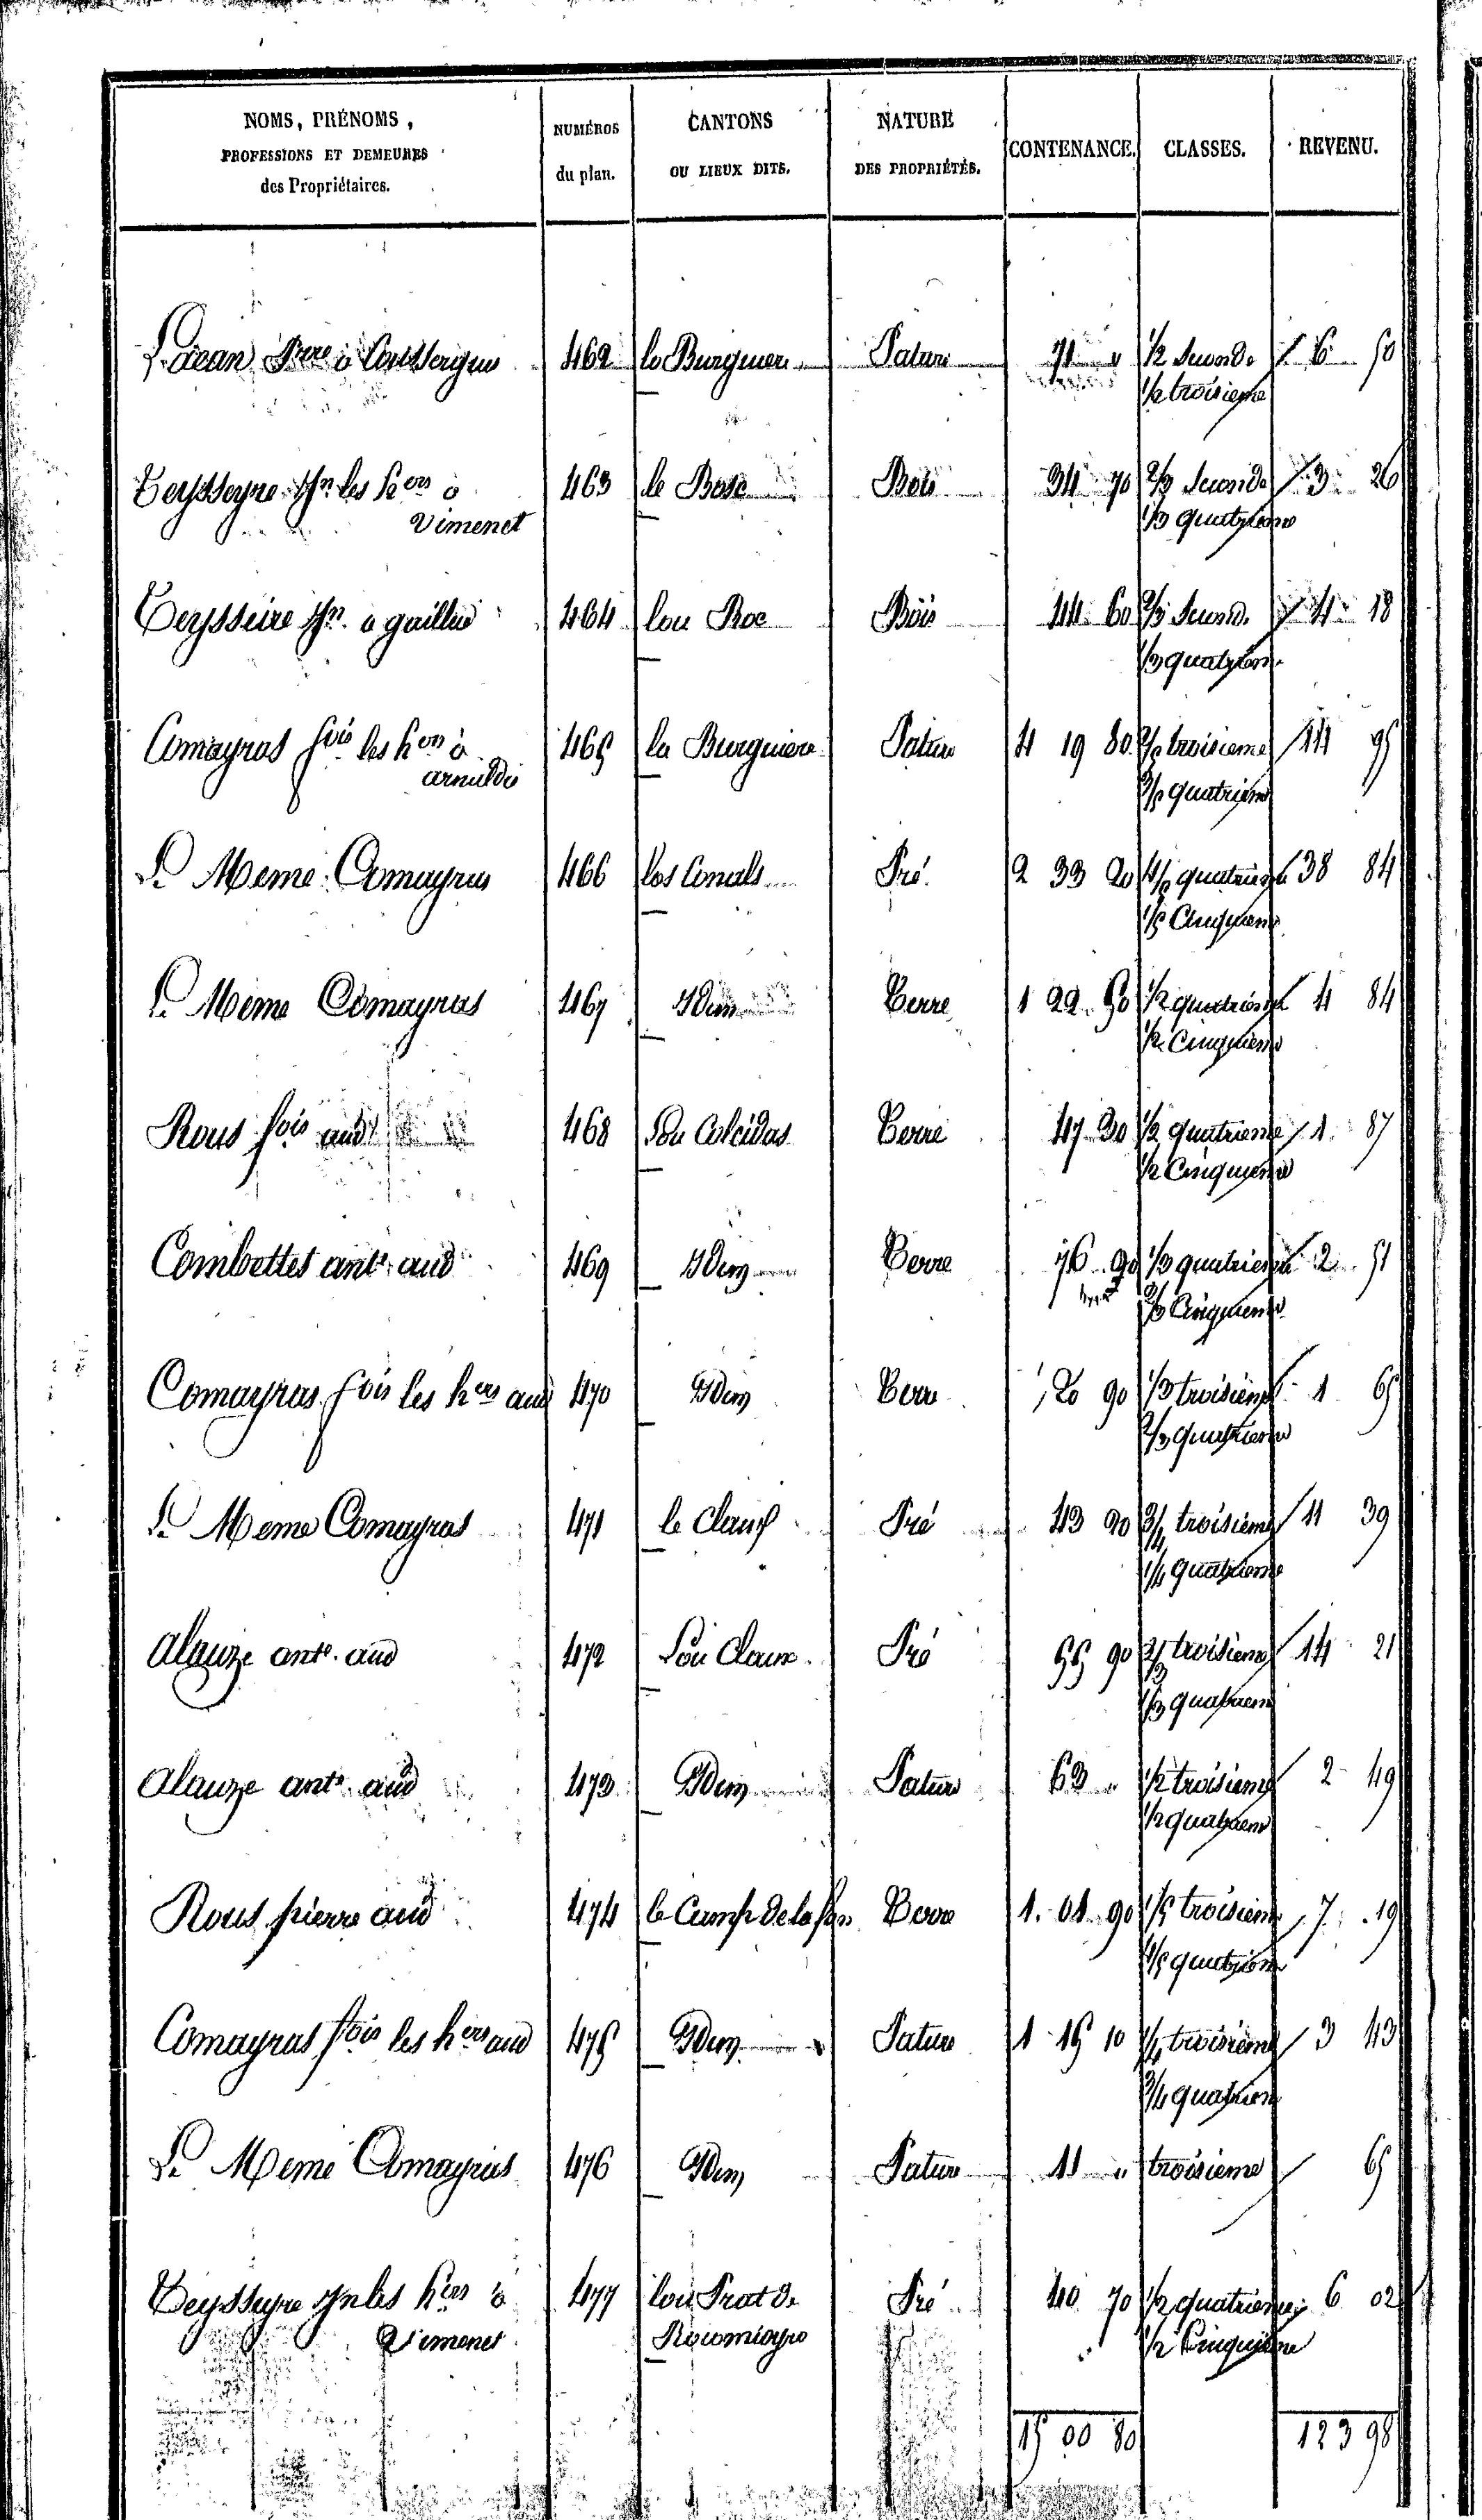 NOMS, PRÉNOMS, PROFESSIONS ET DEMEURES des Propriétaires. | NUMÉROS du plan. | CANTONS OU LIEUX DITS. | NATURE DES PROPRIÉTÉS. | CONTENANCE. | CLASSES. | REVENU.
Jean à Coussergues 462 la Burguiere Pature 71 " 1/2 Seconde 6 50
1/2 troisieme
Teysseyre Jn les hers à 463 le Bosc Bois 34 70 2/3 Seconde 3 26
Vimenet 1/3 quatrieme
Teysseire Jn. a 464 lou Roc Bois 44 60 2/3 Seconde 4 18
1/3 quatrieme
Comayras fois les hers à 465 la Burguiere Pature 4 19 80 2/5 troisieme 14 95
arnaldés 3/5 quatrieme
Le Meme Comayras 466 los Pré 2 33 20 4/5 quatrieme 38 84
1/5 Cinquieme
Le Meme Comayras 467 Idem Terre 1 22 50 1/2 quatrieme 4 84
1/2 Cinquieme
Rous fois aud 468 Lou Terre 47 30 1/2 quatrieme 1 87
1/2 Cinquieme
Combettes ante aud 469 Idem Terre 76 90 1/3 quatrieme 2 51
2/3 Cinquieme
Comayras fois les hers aud 470 Idem Terre 20 90 1/3 troisieme 1 65
2/3 quatrieme
Le Meme Comayras 471 le Claux Pré 43 90 3/4 troisieme 11 39
1/4 quatrieme
alauze ante. aud 472 Lou Claux Pré 55 90 2/3 troisieme 14 21
1/3 quatrieme
alauze ante aud 473 Idem Pature 63 " 1/2 troisieme 2 49
1/2 quatrieme
Rous pierre aud 474 le Camp de la fon Terre 1 01 90 1/5 troisieme 7 19
4/5 quatrieme
Comayras fois les hers aud 475 Idem Pature 1 15 10 1/4 troisieme 3 43
3/4 quatrieme
Le Meme Comayras 476 Idem Pature 11 " troisieme 65
Teysseyre Jn les hers à 477 lou Prat de Pré 40 70 1/2 quatrieme 6 02
Vimenet 1/2 Cinquieme
15 00 80 123 98